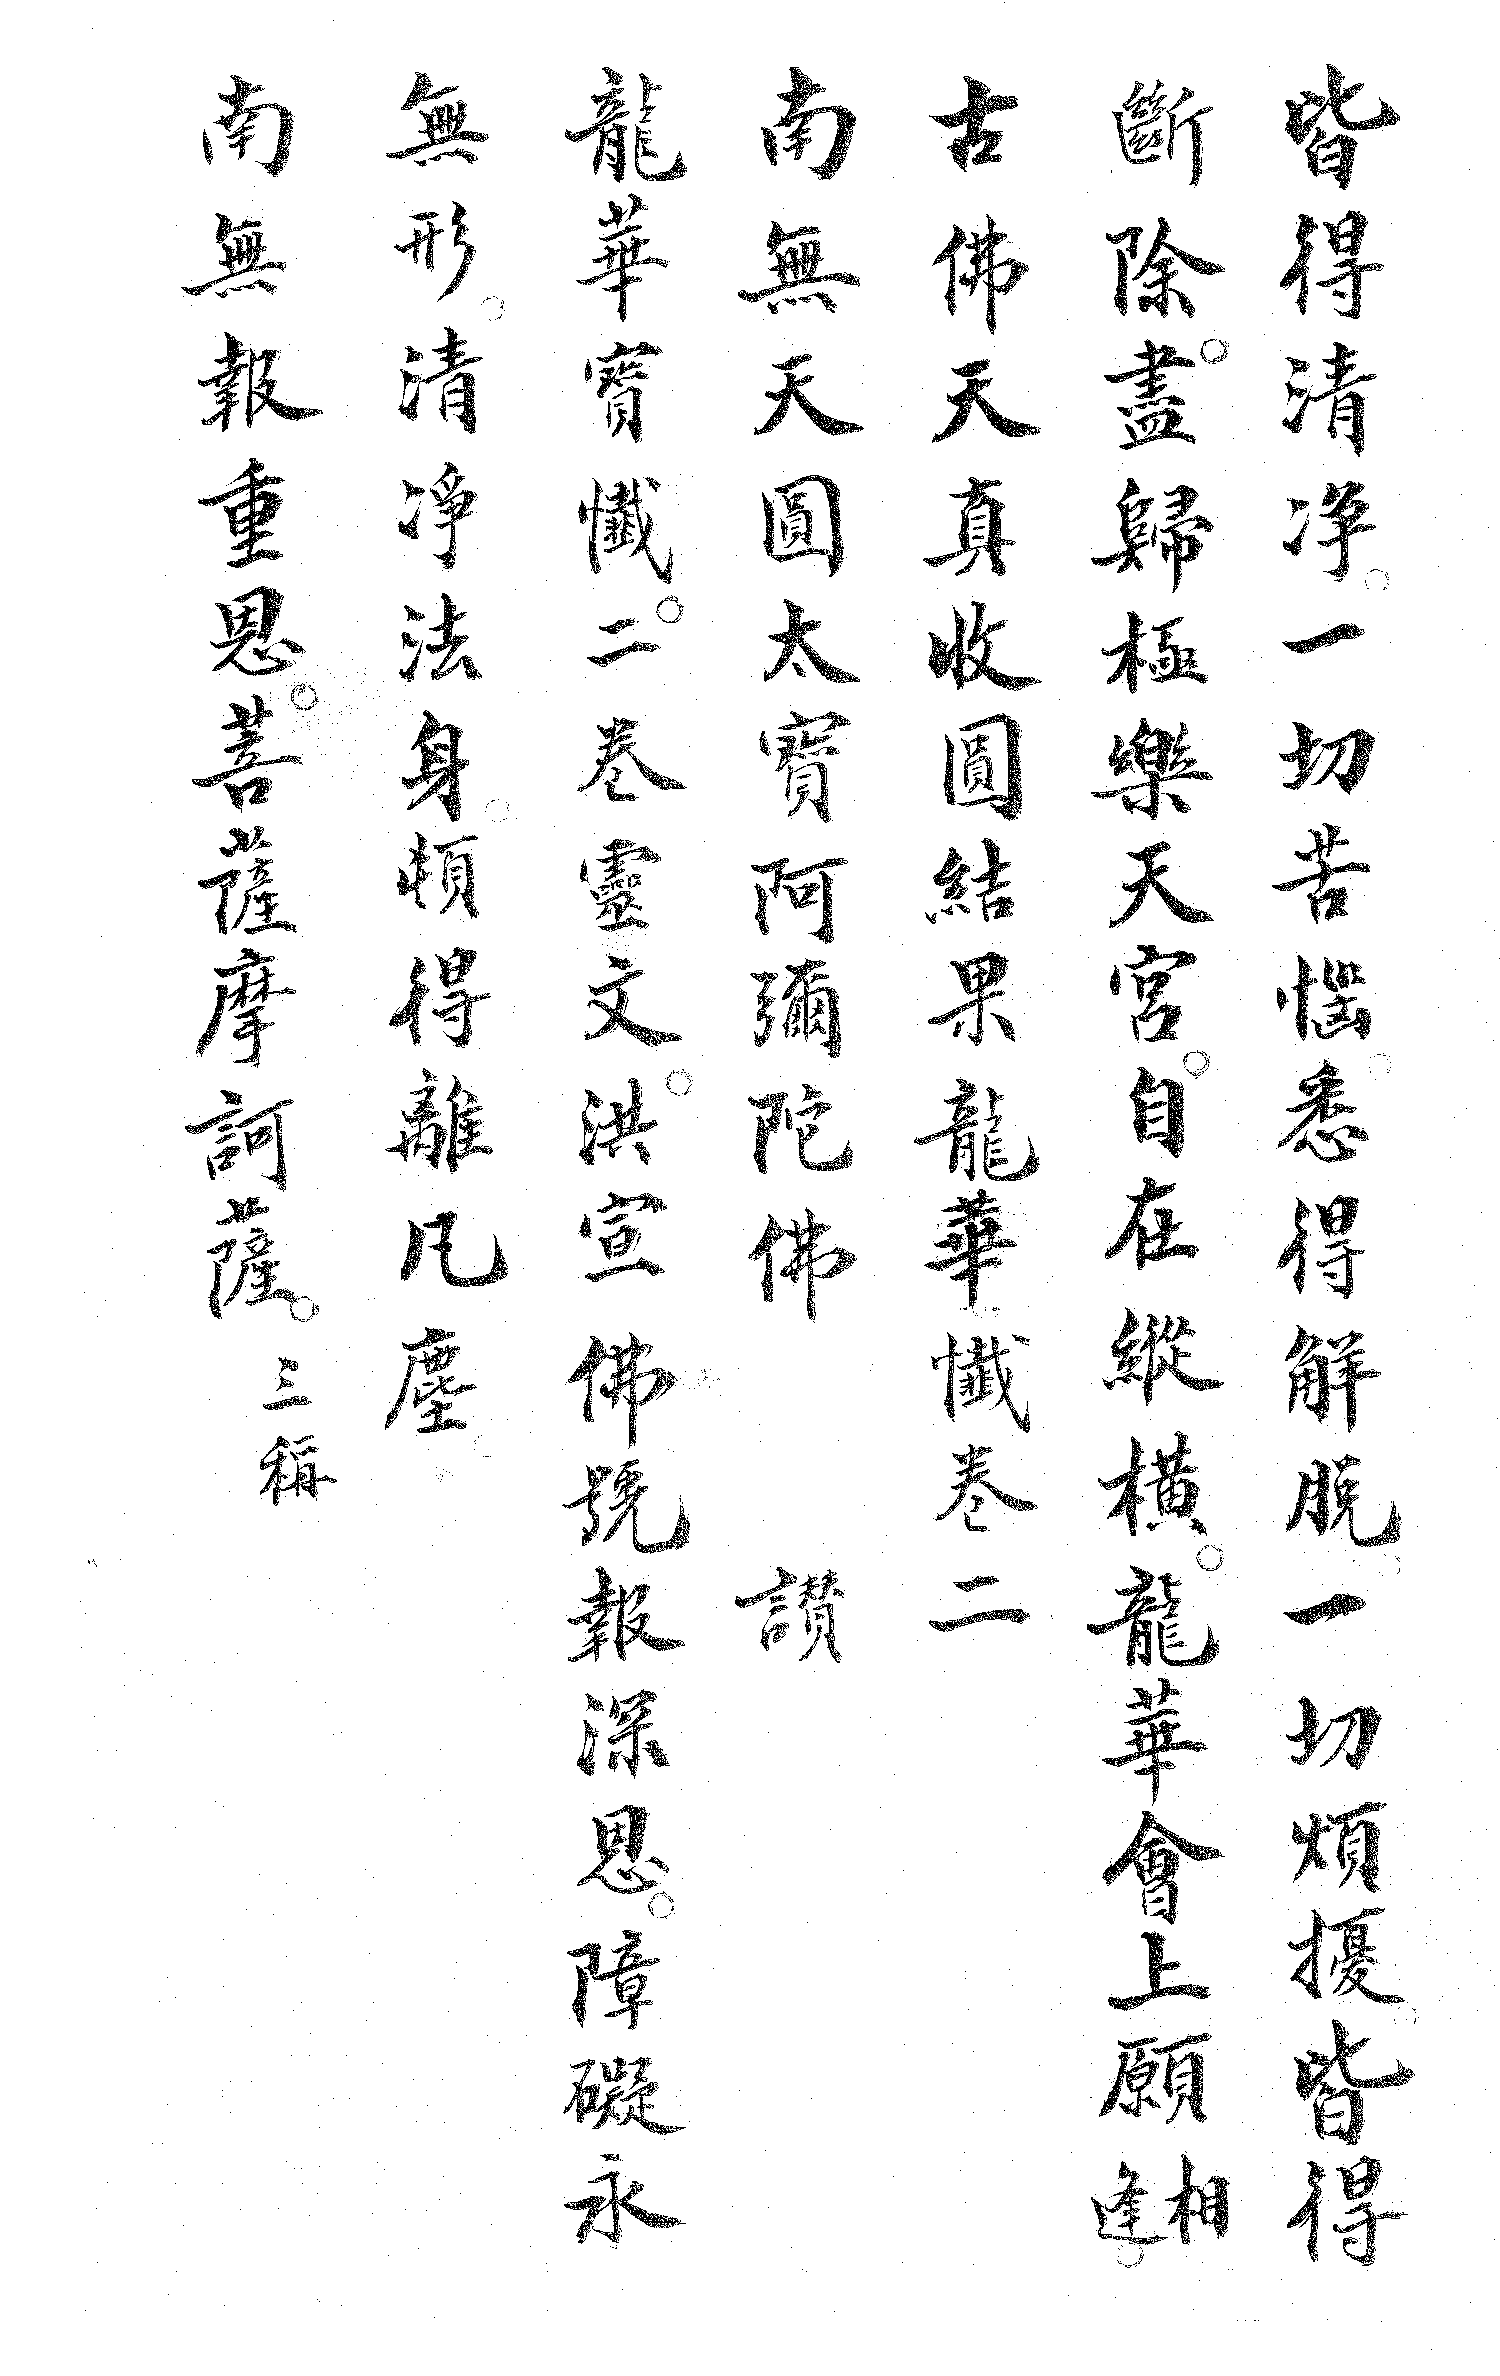 皆得清净。一切苦惱。悉得解脱。一切煩擾。皆得
斷除。盡歸極樂天宮。自在縱橫。龍華會上願相逢。
古佛天真收圓結果龍華懺卷二
南無天圓太寶阿彌陀佛　讚
龍華寶懺。二卷靈文。洪宣佛號報深恩。障礙永
無形。清凈法身。頓得離凡塵
南無報重恩。菩薩摩訶薩。三稱